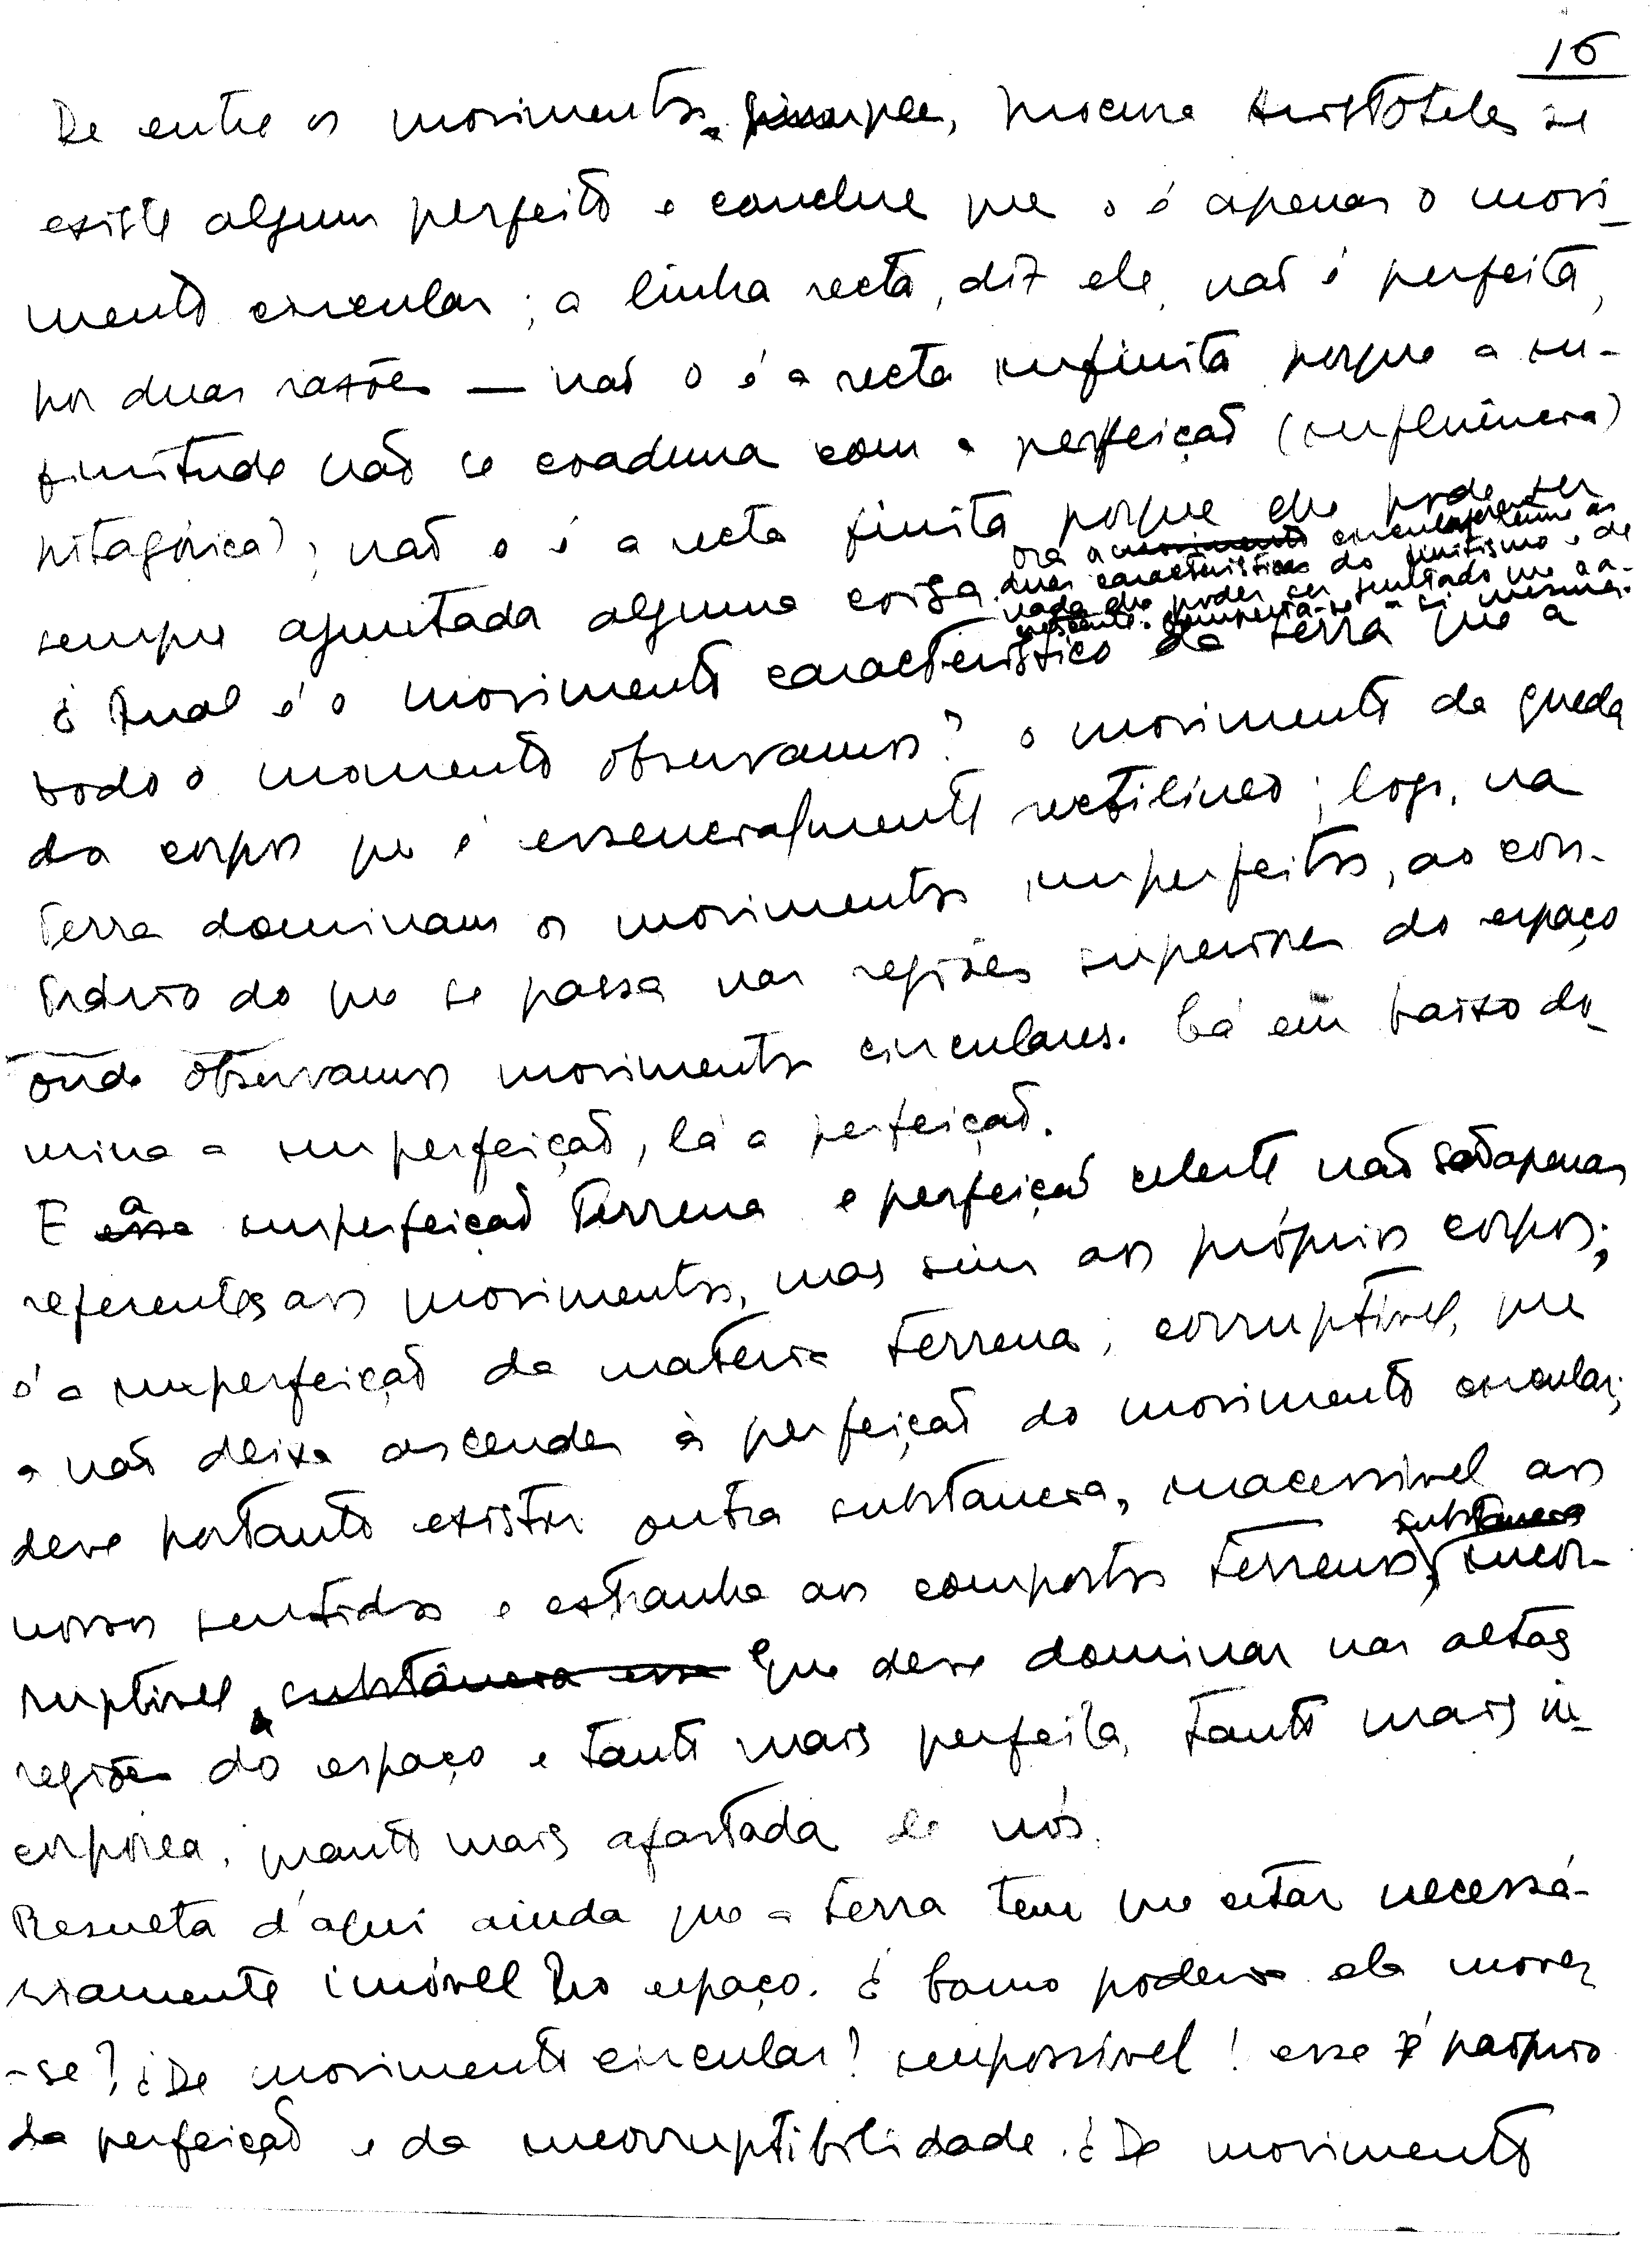 16
De entre os movimentos simples, procura Aristoteles se
existe algum perfeito e conclue que o é apenas o movi-
mento circular; a linha recta, diz ele, não é perfeita,
por duas razões — não o é a recta infinita porque a in-
finitude não se coaduna com a perfeição (influência
pitagórica); não o é a recta finita porque ela pode ser
sempre ajuntada alguma coisa. Ora a circunferencia reune as
duas caracteristicas do finitismo e de
nada ela poder ser juntado que a a-
crescente. completa-se a si mesma.
¿ Qual é o movimento caracteristico da terra que a
todo o momento observamos? o movimento da queda
dos corpos que é essencialmente rectilineo; logo, na
terra dominam os movimentos imperfeitos, ao con-
trário do que se passa nas regiões superiores do espaço
onde observamos movimentos circulares. Cá em baixo do-
mina a imperfeição, lá a perfeição.
E a imperfeição terrena e perfeição celeste não são apenas
referentes aos movimentos, mas sim aos próprios corpos;
é a imperfeição da materia terrena, corruptível, que
a não deixa ascender à perfeição do movimento circular;
deve portanto existir outra substancia, inacessivel aos
nossos sentidos e estranha aos compostos terrenos, substancia incor-
ruptivel, que deve dominar nas altas
regiões do espaço e tanto mais perfeita, tanto mais in-
corpórea, quanto mais afastada de nós.
Resulta d'aqui ainda que a terra tem que estar necessá-
riamente imóvel no espaço. ¿ Como poderia ela mover
-se? ¿ De movimento circular? impossível! esse é próprio
da perfeição e da incorruptibilidade. ¿ De movimento